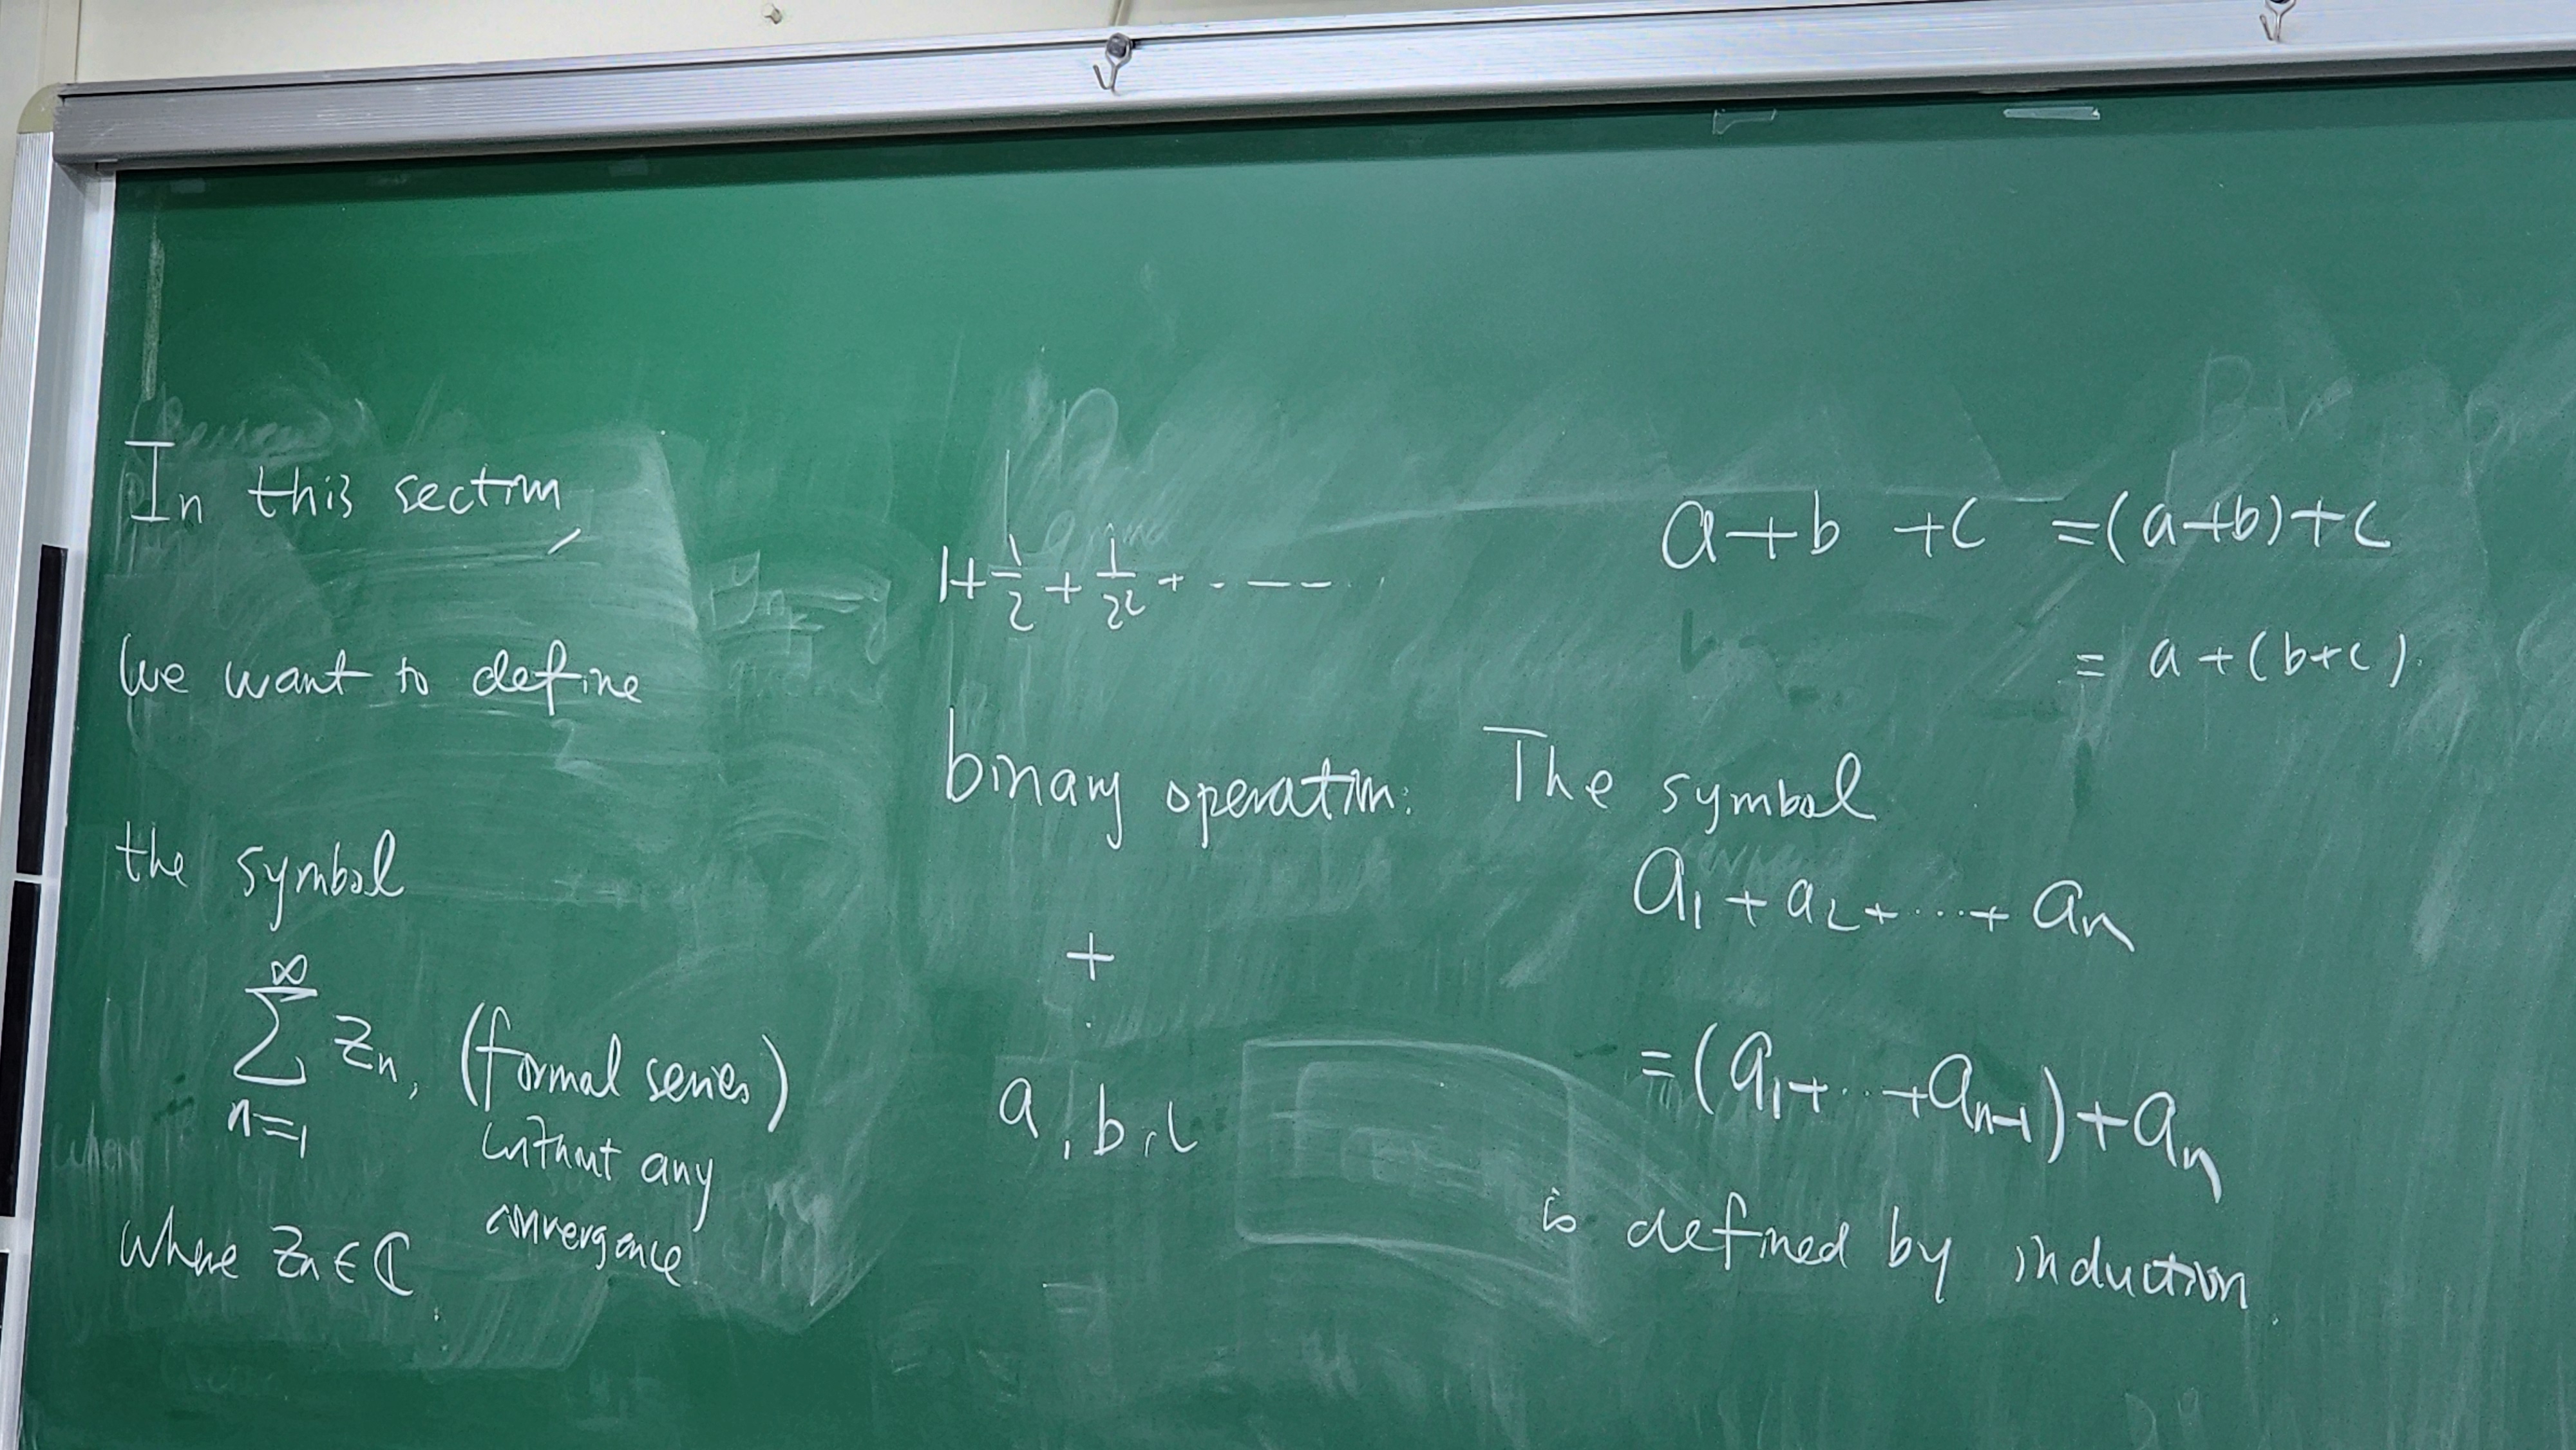 In this section,
we want to define
the symbol
∞
∑ zn, (formal series)
n=1
without any
convergence
where zn ∈ ℂ.
1+1/2+1/2²+·---
binary operation.
+
a, b, c
a+b +c =(a+b)+c
= a+(b+c).
The symbol
a₁+a₂+···+aₙ
=(a₁+··+aₙ₋₁)+aₙ
is defined by induction.